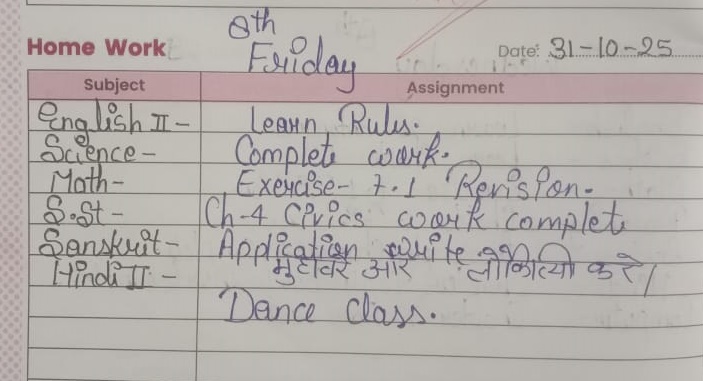 8th
Home Work Friday Date: 31-10-25
Subject Assignment
English II - Learn Rules.
Science - Complete work.
Math - Exercise - 7.1 Revision.
S.St - Ch-4 Civics work complete
Sanskrit - Application write
Hindi II - मुहावरे और लोकोक्तियाँ करे।
Dance Class.